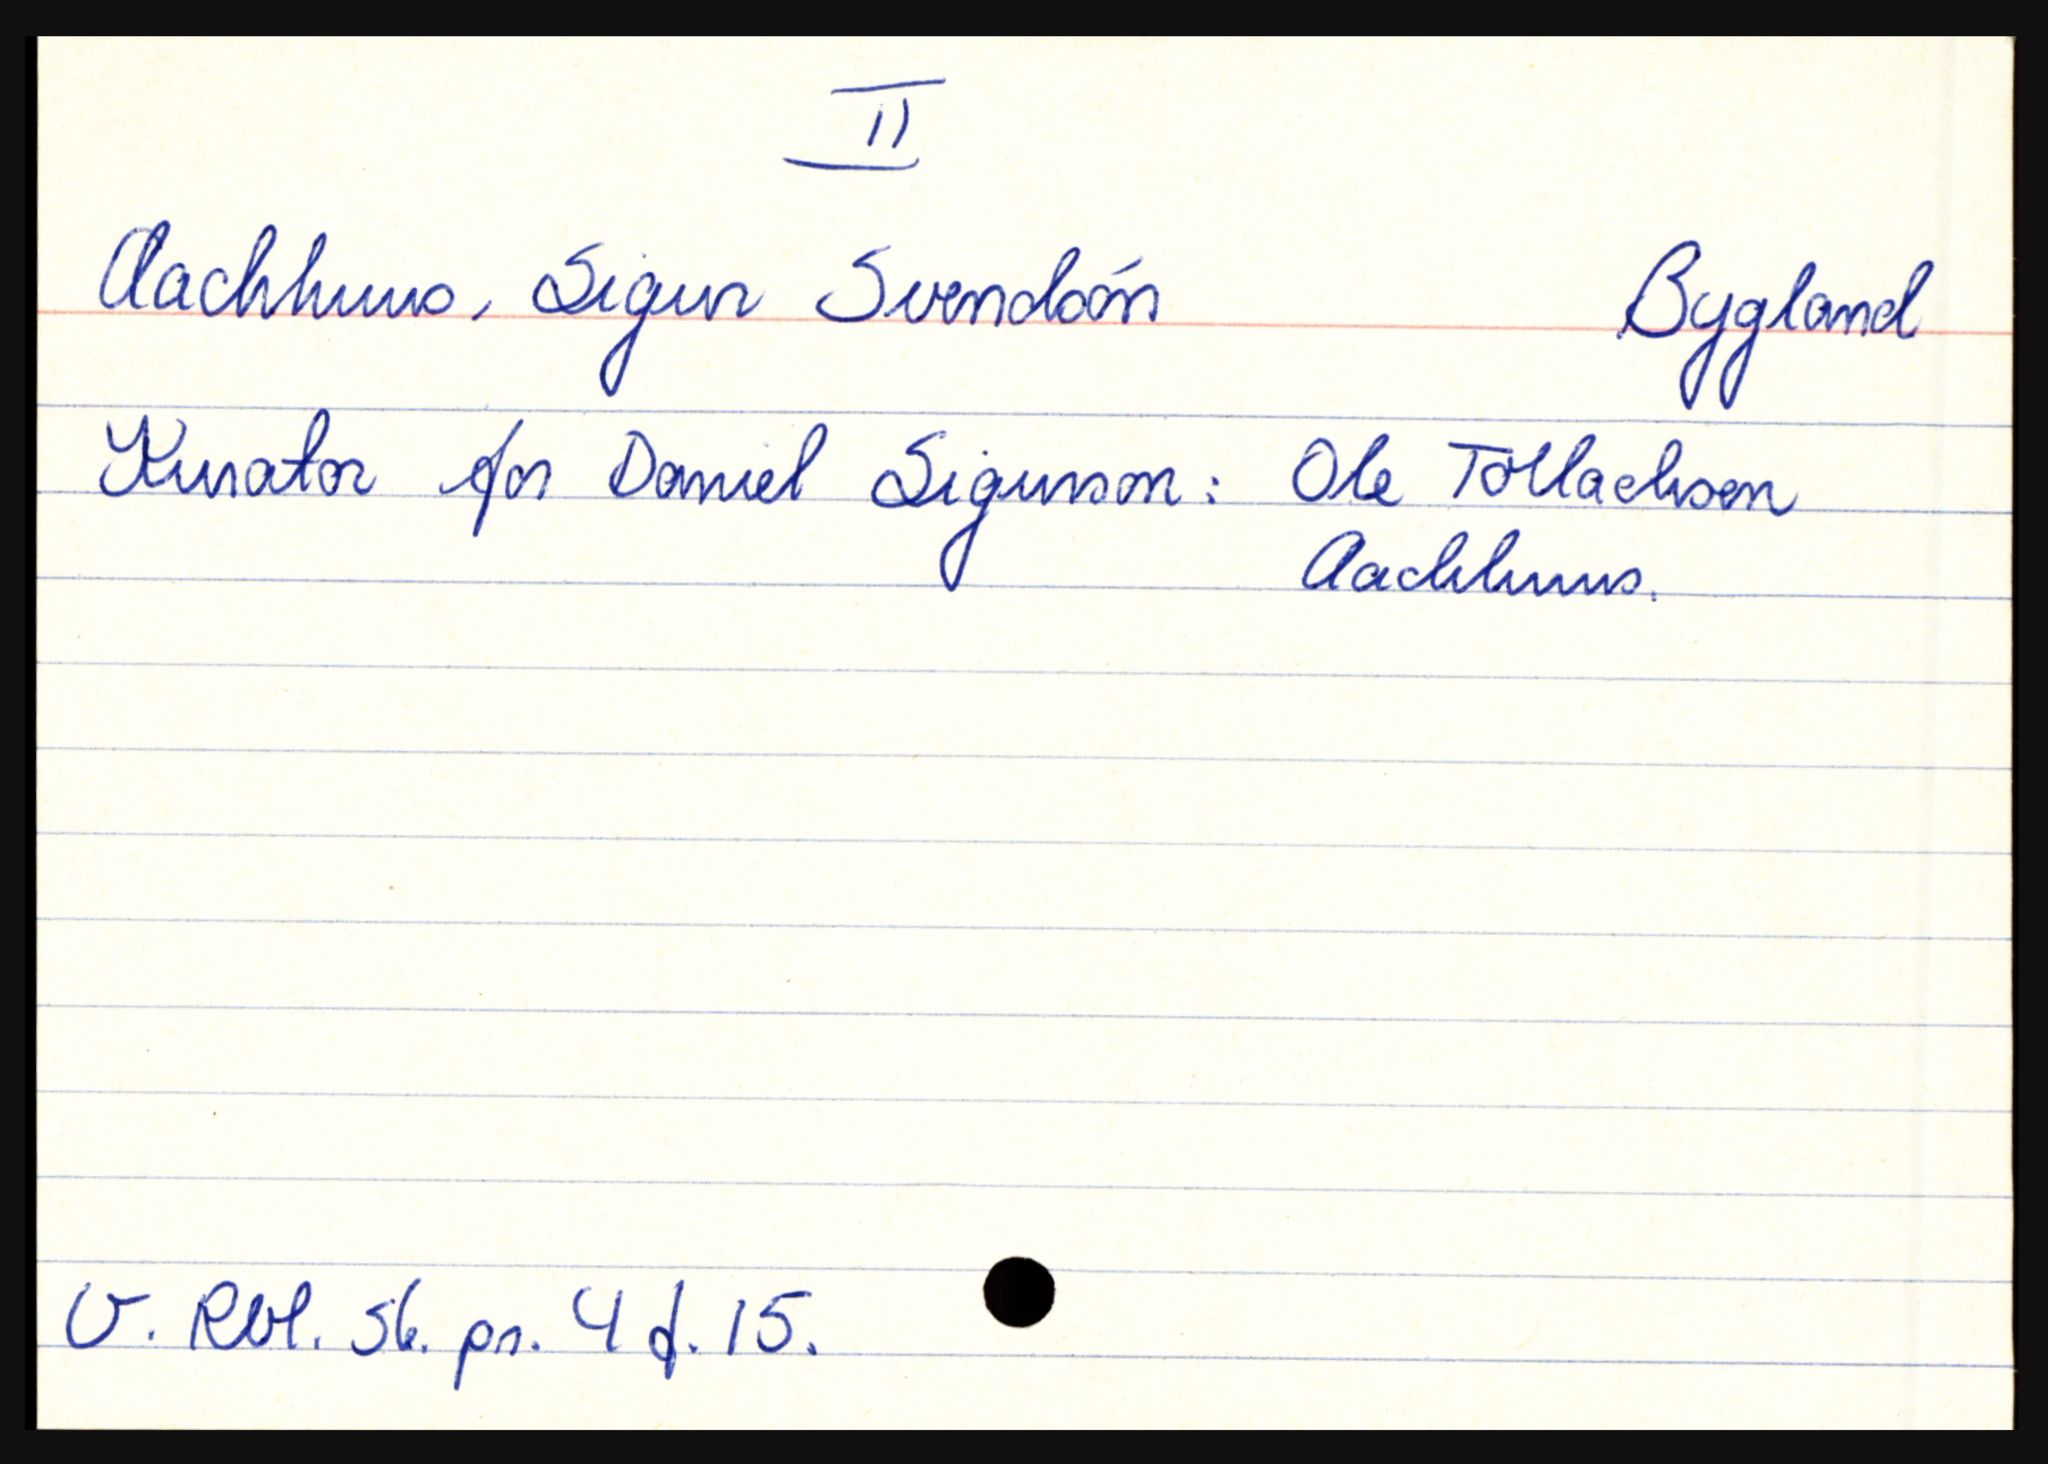 II
Aachhuus, Sigur Svendsón Bygland
Kurator for Daniel Sigurson: Ole Tollachsen
Aachhuus.
V. Rbl. 56. pr. 4 f. 15.